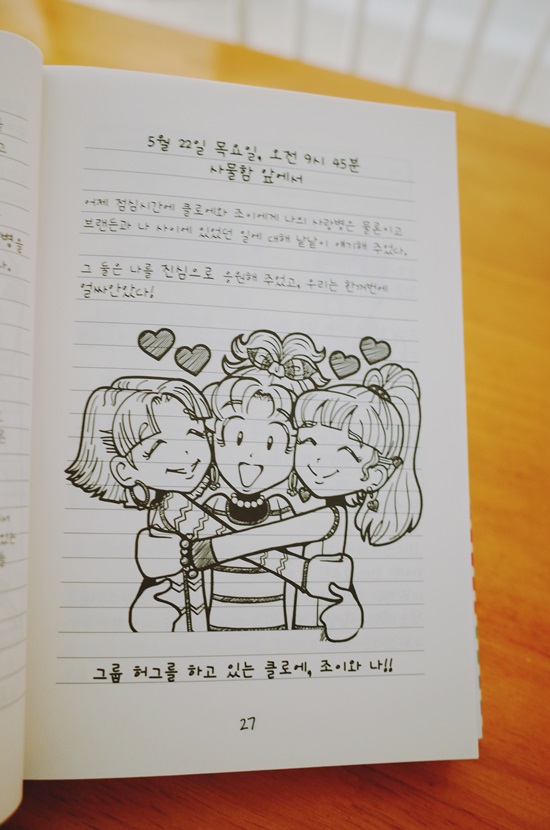 5월 22일 목요일, 오전 9시 45분
사물함 앞에서
어제 점심시간에 클로에와 조이에게 나의 사랑병은 물론이고
브랜든과 나 사이에 있었던 일에 대해 낱낱이 얘기해 주었다.
그 둘은 나를 진심으로 응원해 주었고, 우리는 한꺼번에
얼싸안았다!
그룹 허그를 하고 있는 클로에, 조이와 나!!
27